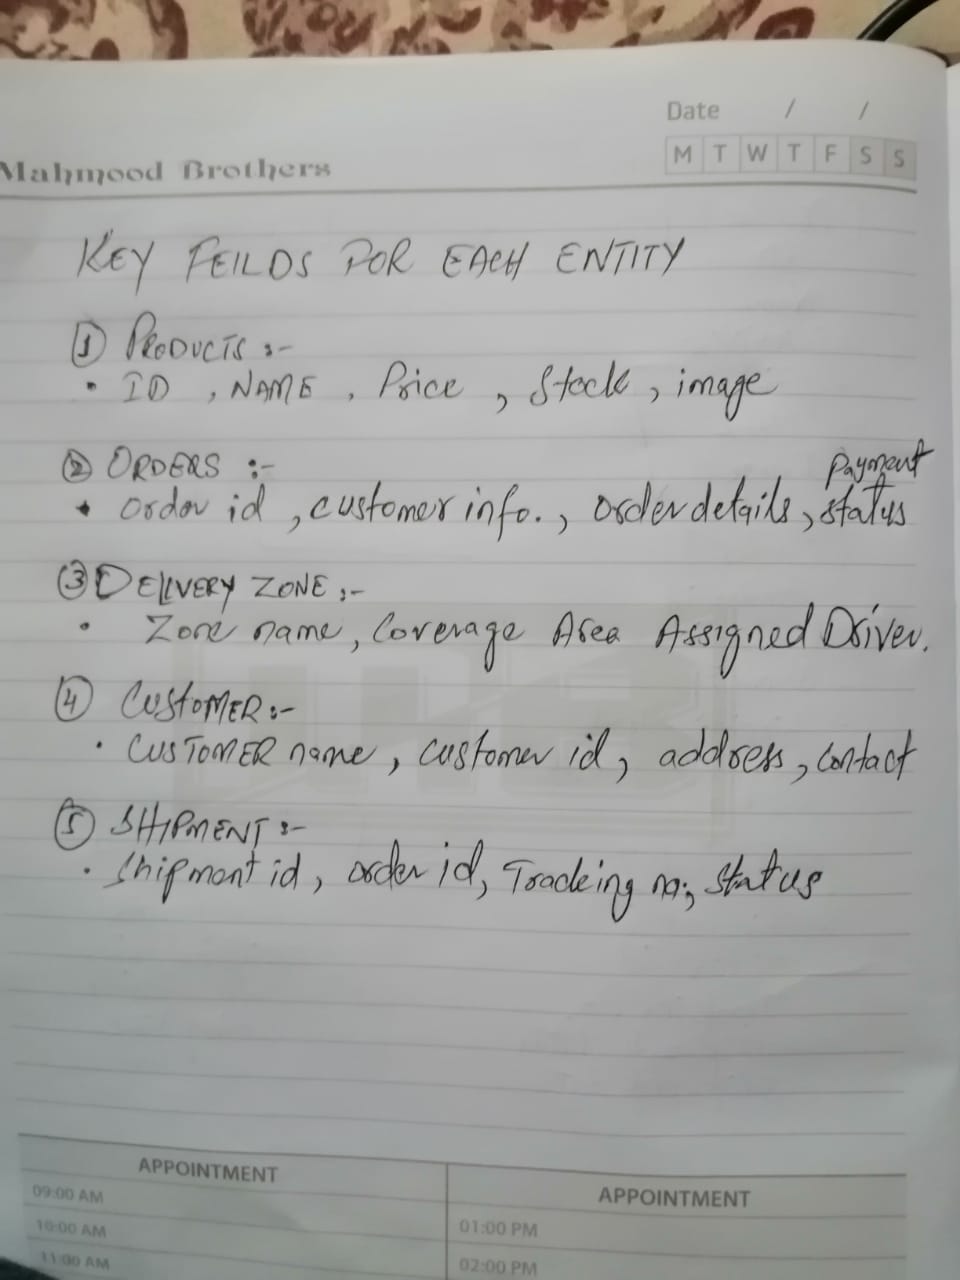 Date / /
M T W T F S S
Mahmood Brothers
KEY FEILDS FOR EACH ENTITY
① PRODUCTS :-
• ID , NAME , Price , Stock , image
② ORDERS :-
Payment
• Order id , customer info. , order details , status
③ DELIVERY ZONE :-
• Zone name , Coverage Area Assigned Driver.
④ CUSTOMER :-
• CUSTOMER name , customer id , address , contact
⑤ SHIPMENT :-
• Shipment id , order id , Tracking no; Status
APPOINTMENT
APPOINTMENT
09:00 AM
01:00 PM
10:00 AM
02:00 PM
11:00 AM